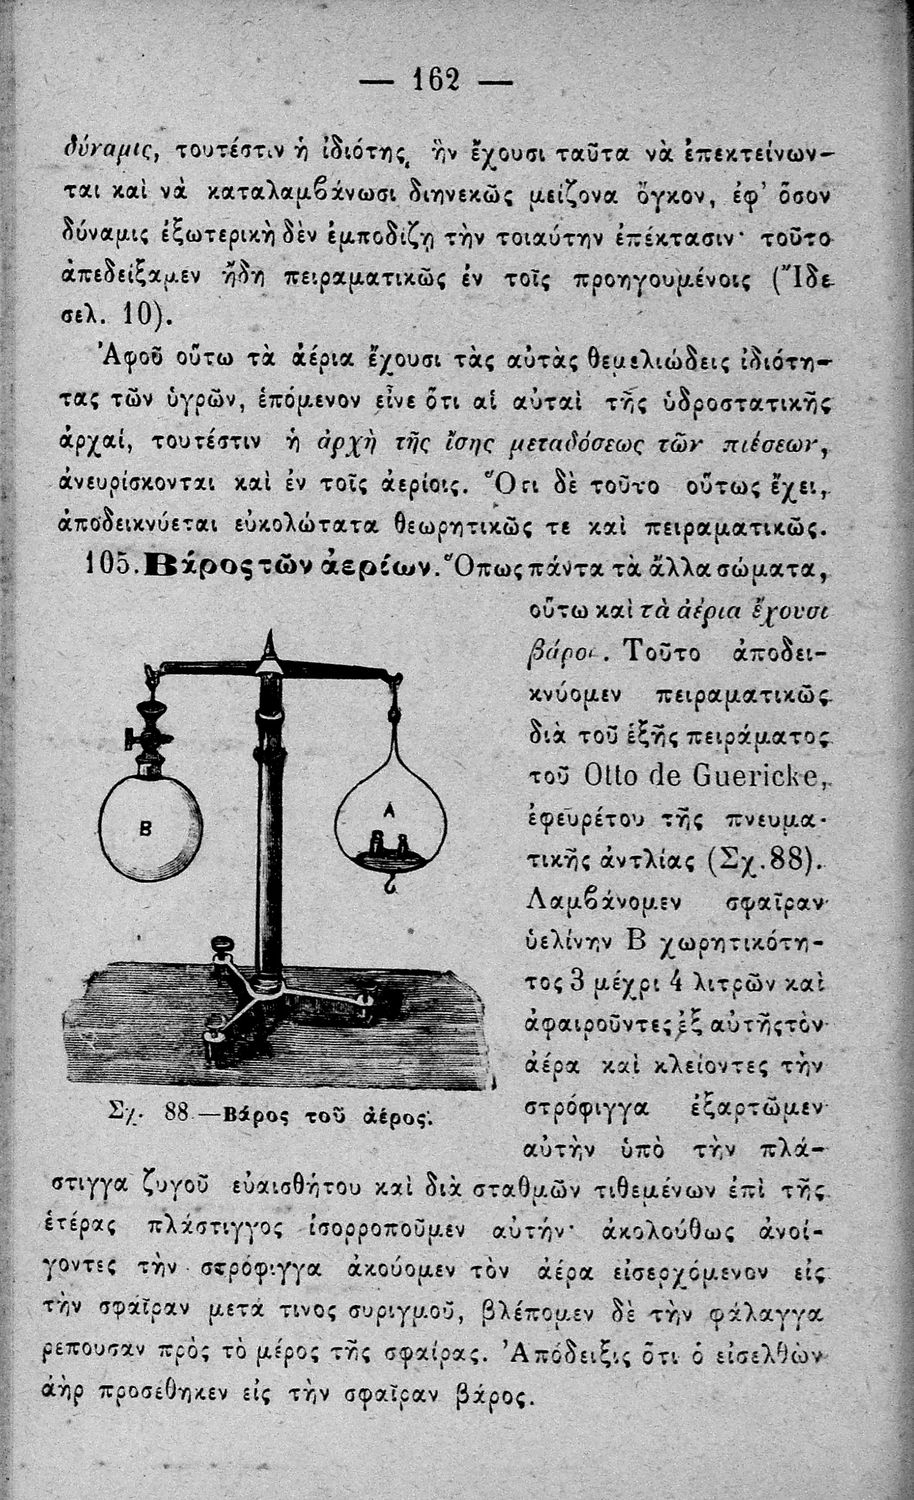 — 162 —
δύναμις, τουτέστιν ἡ ἰδιότης, ἣν ἔχουσι ταῦτα νὰ ἐπεκτείνων–
ται καὶ νὰ καταλαμβάνωσι διηνεκῶς μείζονα ὄγκον, ἐφ' ὅσον
δύναμις ἐξωτερικὴ δὲν ἐμποδίζῃ τὴν τοιαύτην ἐπέκτασιν· τοῦτο
ἀπεδείξαμεν ἤδη πειραματικῶς ἐν τοῖς προηγουμένοις (Ἴδε
σελ. 10).
Ἀφοῦ οὕτω τὰ ἀέρια ἔχουσι τὰς αὐτὰς θεμελιώδεις ἰδιότη–
τας τῶν ὑγρῶν, ἑπόμενον εἶνε ὅτι αἱ αὐταὶ τῆς ὑδροστατικῆς
ἀρχαί, τουτέστιν ἡ ἀρχὴ τῆς ἴσης μεταδόσεως τῶν πιέσεων,
ἀνευρίσκονται καὶ ἐν τοῖς ἀερίοις. Ὅτι δὲ τοῦτο οὕτως ἔχει,
ἀποδεικνύεται εὐκολώτατα θεωρητικῶς τε καὶ πειραματικῶς.
105. Βάρος τῶν ἀερίων. Ὅπως πάντα τὰ ἄλλα σώματα,
οὕτω καὶ τὰ ἀέρια ἔχουσι
βάρος. Τοῦτο ἀποδει–
κνύομεν πειραματικῶς
διὰ τοῦ ἑξῆς πειράματος
τοῦ Otto de Guericke,
ἐφευρέτου τῆς πνευμα-
τικῆς ἀντλίας (Σχ. 88).
Λαμβάνομεν σφαῖραν
ὑελίνην Β χωρητικότη–
τος 3 μέχρι 4 λιτρῶν καὶ
ἀφαιροῦντες ἐξ αὐτῆς τὸν
ἀέρα καὶ κλείοντες τὴν
στρόφιγγα ἐξαρτῶμεν
αὐτὴν ὑπὸ τὴν πλά–
B
A
Σχ. 88.—Βάρος τοῦ ἀέρος.
στιγγα ζυγοῦ εὐαισθήτου καὶ διὰ σταθμῶν τιθεμένων ἐπὶ τῆς
ἑτέρας πλάστιγγος ἰσορροποῦμεν αὐτήν· ἀκολούθως ἀνοί-
γοντες τὴν στρόφιγγα ἀκούομεν τὸν ἀέρα εἰσερχόμενον εἰς
τὴν σφαῖραν μετά τινος συριγμοῦ, βλέπομεν δὲ τὴν φάλαγγα
ρεπουσαν πρὸς τὸ μέρος τῆς σφαίρας. Ἀπόδειξις ὅτι ὁ εἰσελθὼν
ἀὴρ προσέθηκεν εἰς τὴν σφαῖραν βάρος.